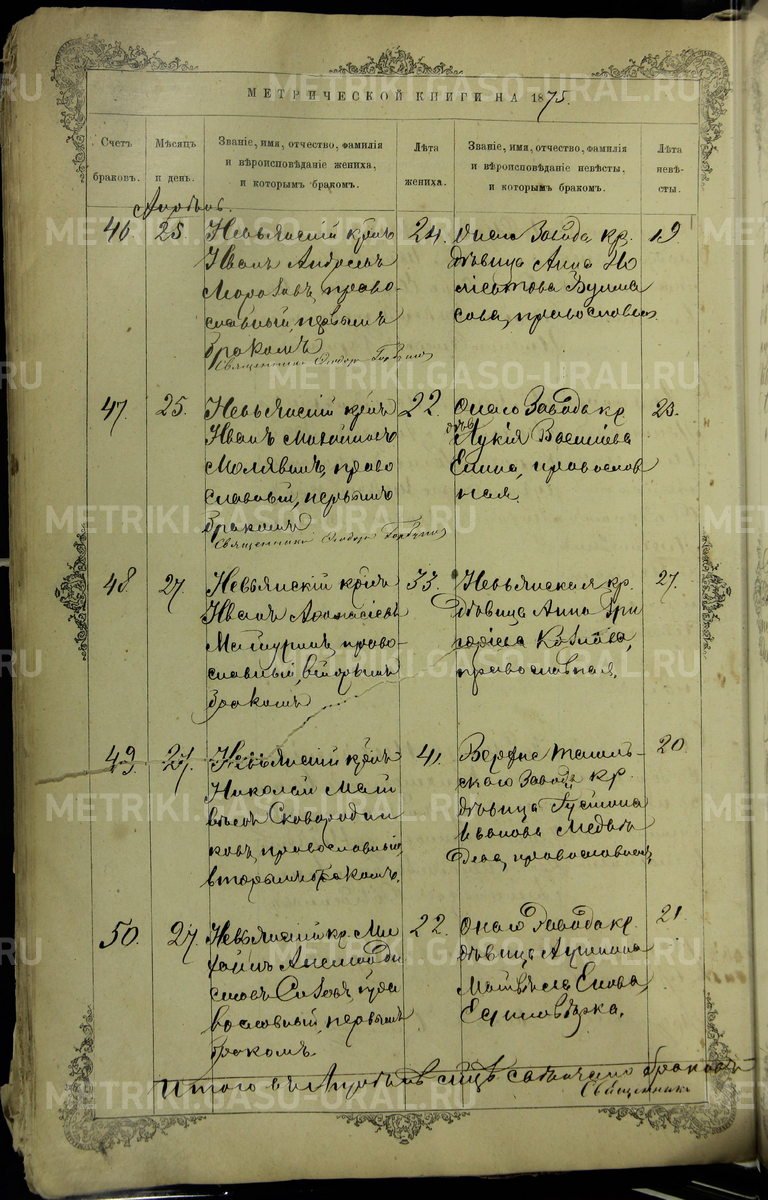 МЕТРИЧЕСКОЙ КНИГИ НА 1875.
Счетъ браковъ.
Мѣсяцъ и день.
Званіе, имя, отчество, фамилія
и вѣроисповѣданіе жениха,
и которымъ бракомъ.
Лѣта жениха.
Званіе, имя, отчество, фамилія
и вѣроисповѣданіе невѣсты,
и которымъ бракомъ.
Лѣта невѣ-
сты.
46 25
Невьянскій крнъ
Иванъ Андреевъ
Морозовъ, право-
славный, первымъ
бракомъ
Священникъ
24.
Онаго Завода кр.
дѣвица Анна
православн
19
47. 25.
Невьянскій крнъ
Иванъ Михайловъ
Молявинъ, право
славный, первымъ
бракомъ
Священникъ
22.
Онаго Завода кр
дѣв
Лукія Васильева
Елина, православ
ная.
23.
48 27.
Невьянскій крнъ
Иванъ Аѳанасіевъ
право-
славный, вторымъ
бракомъ
33.
Невьянская кр.
дѣвица Анна Гри
горіева Козлова,
православная.
27.
49 27.
Невьянскій крнъ
Николай Мат
вѣевъ Сковородни
ковъ, православный,
вторымъ бракомъ.
41.
Верхне Тагиль-
скаго Завода кр.
дѣвица Іустина
Иванова Медвѣ
дева, православная,
20.
50. 27
Невьянскій кр. Ми
хаилъ
Сизовъ, пра
вославный, первымъ
бракомъ.
22.
Онаго Завода кр.
дѣвица
Матвѣева
Единовѣрка.
21
Итого въ Апрѣлѣ м-цѣ бракомъ
Священникъ